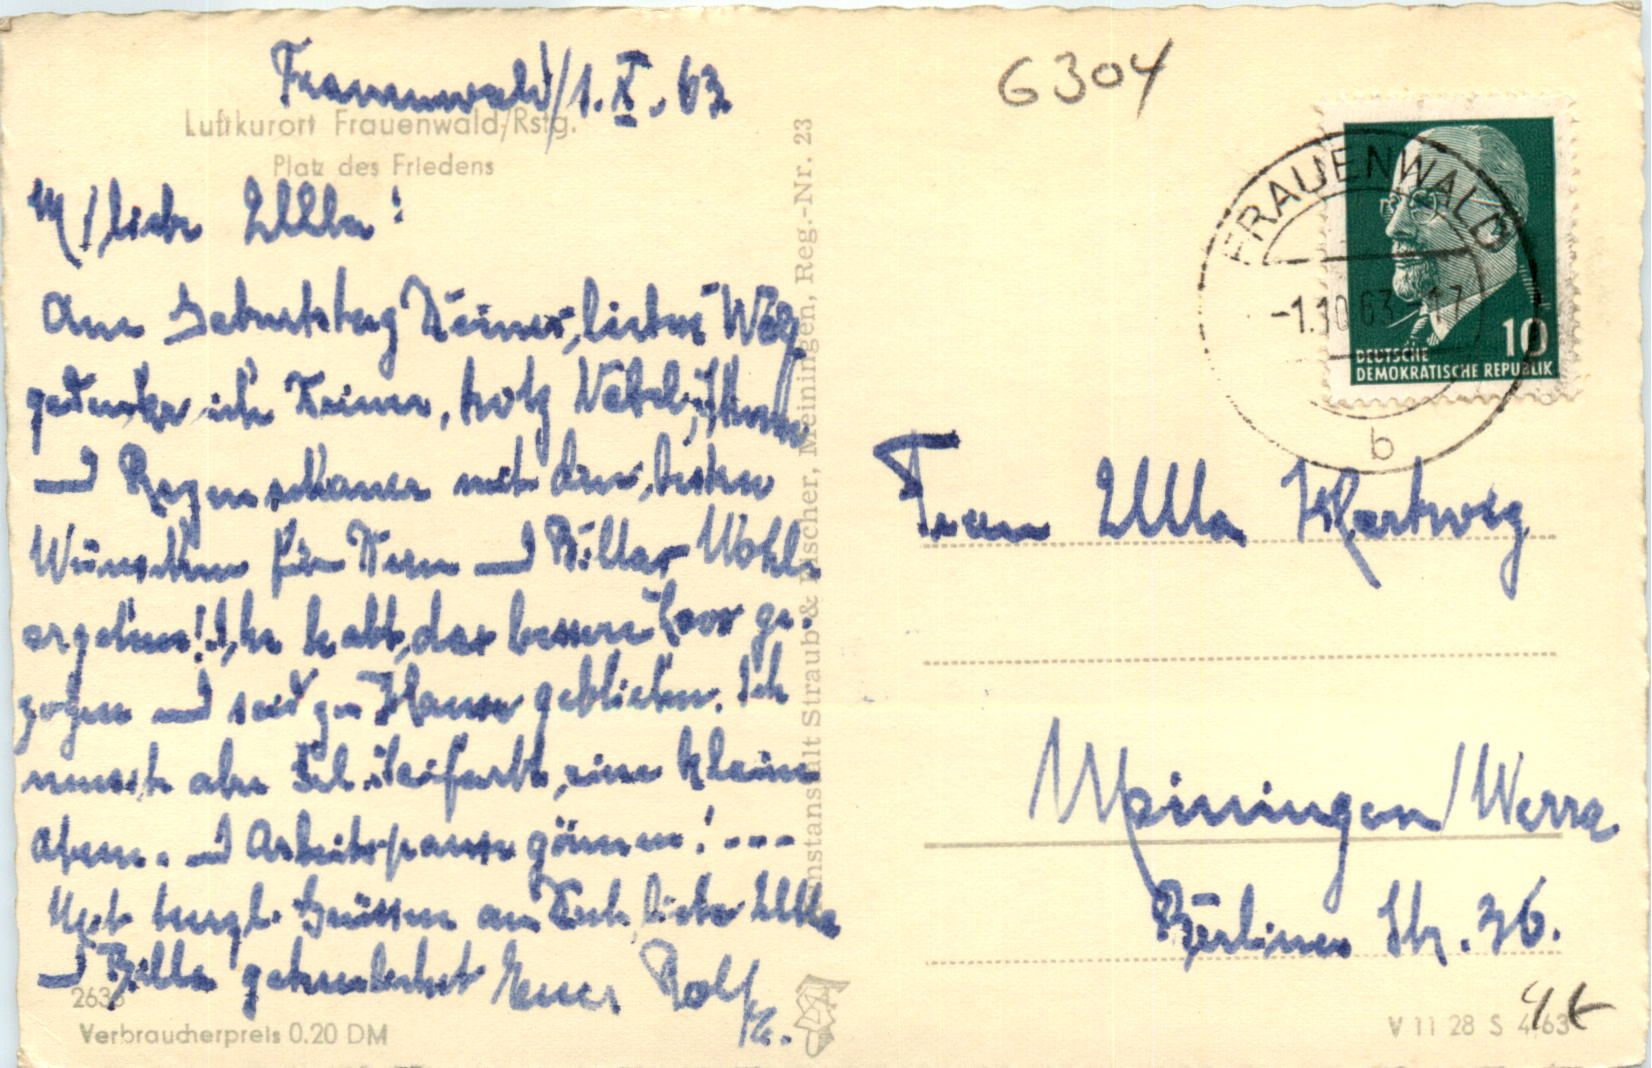 Frauenwald/1.X.63.
Luftkurort Frauenwald/Rstg.
Platz des Friedens
M/liebe Ulla!
Am Geburtstag Deiner, lieben
gedenke ich Deiner, trotz Nebel, Sturm
und Regenschauer mit den besten
Wünschen für Dein und Bellas Wohl-
ergehen! Ihr habt das bessere Loos ge-
zogen und seid zu Hause geblieben. Ich
mußte aber eine kleine
Atem- und Arbeitspause gönnen! ---
Mit herzl. Grüssen an Dich, liebe Ulla
und Bella Euer Rolf
2636
Verbraucherpreis 0.20 DM
Straub & Fischer, Meiningen, Reg.-Nr. 23
6304
FRAUENWALD
-1.10.63-17
b
10
DEUTSCHE
DEMOKRATISCHE REPUBLIK
Frau Ulla Hartwig
Meiningen/Werra
Berliner Str. 36.
V 11 28 S 4/63